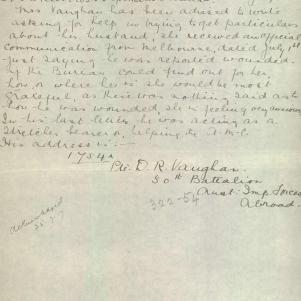 Mrs Vaughan has been advised to write
asking for help in trying to get particulars
about her husband, she received an official
communication from Melbourne, dated July
just saying he was reported wounded.
If the Bureau could find out for her
how or where he is she would be most
grateful, as there was nothing said as to
how he was wounded, she is feeling very anxious
In his last letter he was acting as a
Stretcher bearer or, helping the A.M.C.
His address is:-
1754A
Pte. D. R. Vaughan.
30th Battalion
Aust. Imp. Forces
Abroad.
322-54